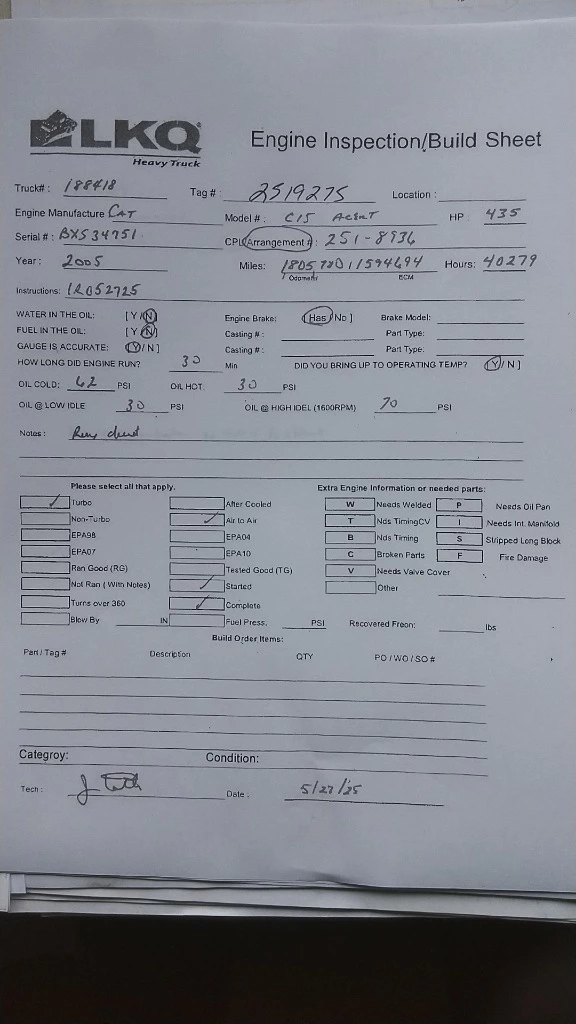 LKQ
Heavy Truck
Engine Inspection/Build Sheet
Truck#: 188418 Tag #: 2519275 Location:
Engine Manufacture CAT Model #: C15 Acert HP 435
Serial #: BXS34751 CPL/Arrangement #: 251-8936
Year: 2005 Miles: 1594694 Hours: 40279
Odometer ECM
Instructions:
WATER IN THE OIL: [Y/N] Engine Brake: [Has/No] Brake Model:
FUEL IN THE OIL: [Y/N] Casting #: Part Type:
GAUGE IS ACCURATE: [Y/N] Casting #: Part Type:
HOW LONG DID ENGINE RUN? 30 Min DID YOU BRING UP TO OPERATING TEMP? (Y/N)
OIL COLD: 62 PSI OIL HOT 30 PSI
OIL @ LOW IDLE 30 PSI OIL @ HIGH IDEL (1600RPM) 70 PSI
Notes:
Please select all that apply. Extra Engine Information or needed parts:
Turbo After Cooled W Needs Welded P Needs Oil Pan
Non-Turbo Air to Air T Nds TimingCV I Needs Int. Manifold
EPA98 EPA04 B Nds Timing S Stripped Long Block
EPA07 EPA10 C Broken Parts F Fire Damage
Ran Good (RG) Tested Good (TG) V Needs Valve Cover
Not Ran (With Notes) Started Other
Turns over 360 Complete
Blow By IN Fuel Press. PSI Recovered Freon: lbs
Build Order Items:
Part / Tag # Description QTY PO / WO / SO #
Categroy: Condition:
Tech: Date: 5/27/25